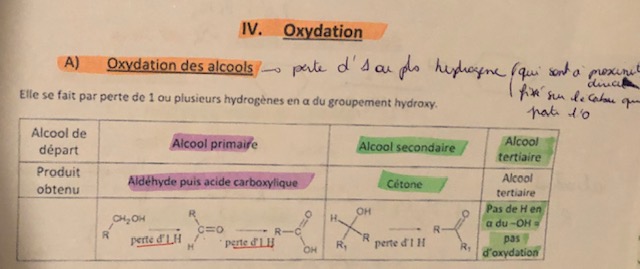 IV. Oxydation
A) Oxydation des alcools → perte d'1 ou pls hydrogène (qui sont à proximité
directe
fixé sur le carbone qui
porte l'O
Elle se fait par perte de 1 ou plusieurs hydrogènes en α du groupement hydroxy.
Alcool de départ
Alcool primaire
Alcool secondaire
Alcool tertiaire
Produit obtenu
Aldéhyde puis acide carboxylique
Cétone
Alcool tertiaire
CH₂OH
R
perte d'1 H
R
C=O
H
perte d'1 H
R—C
O
OH
H
OH
R₁
R
perte d'1 H
R
O
R₁
Pas de H en
α du –OH =
pas
d'oxydation